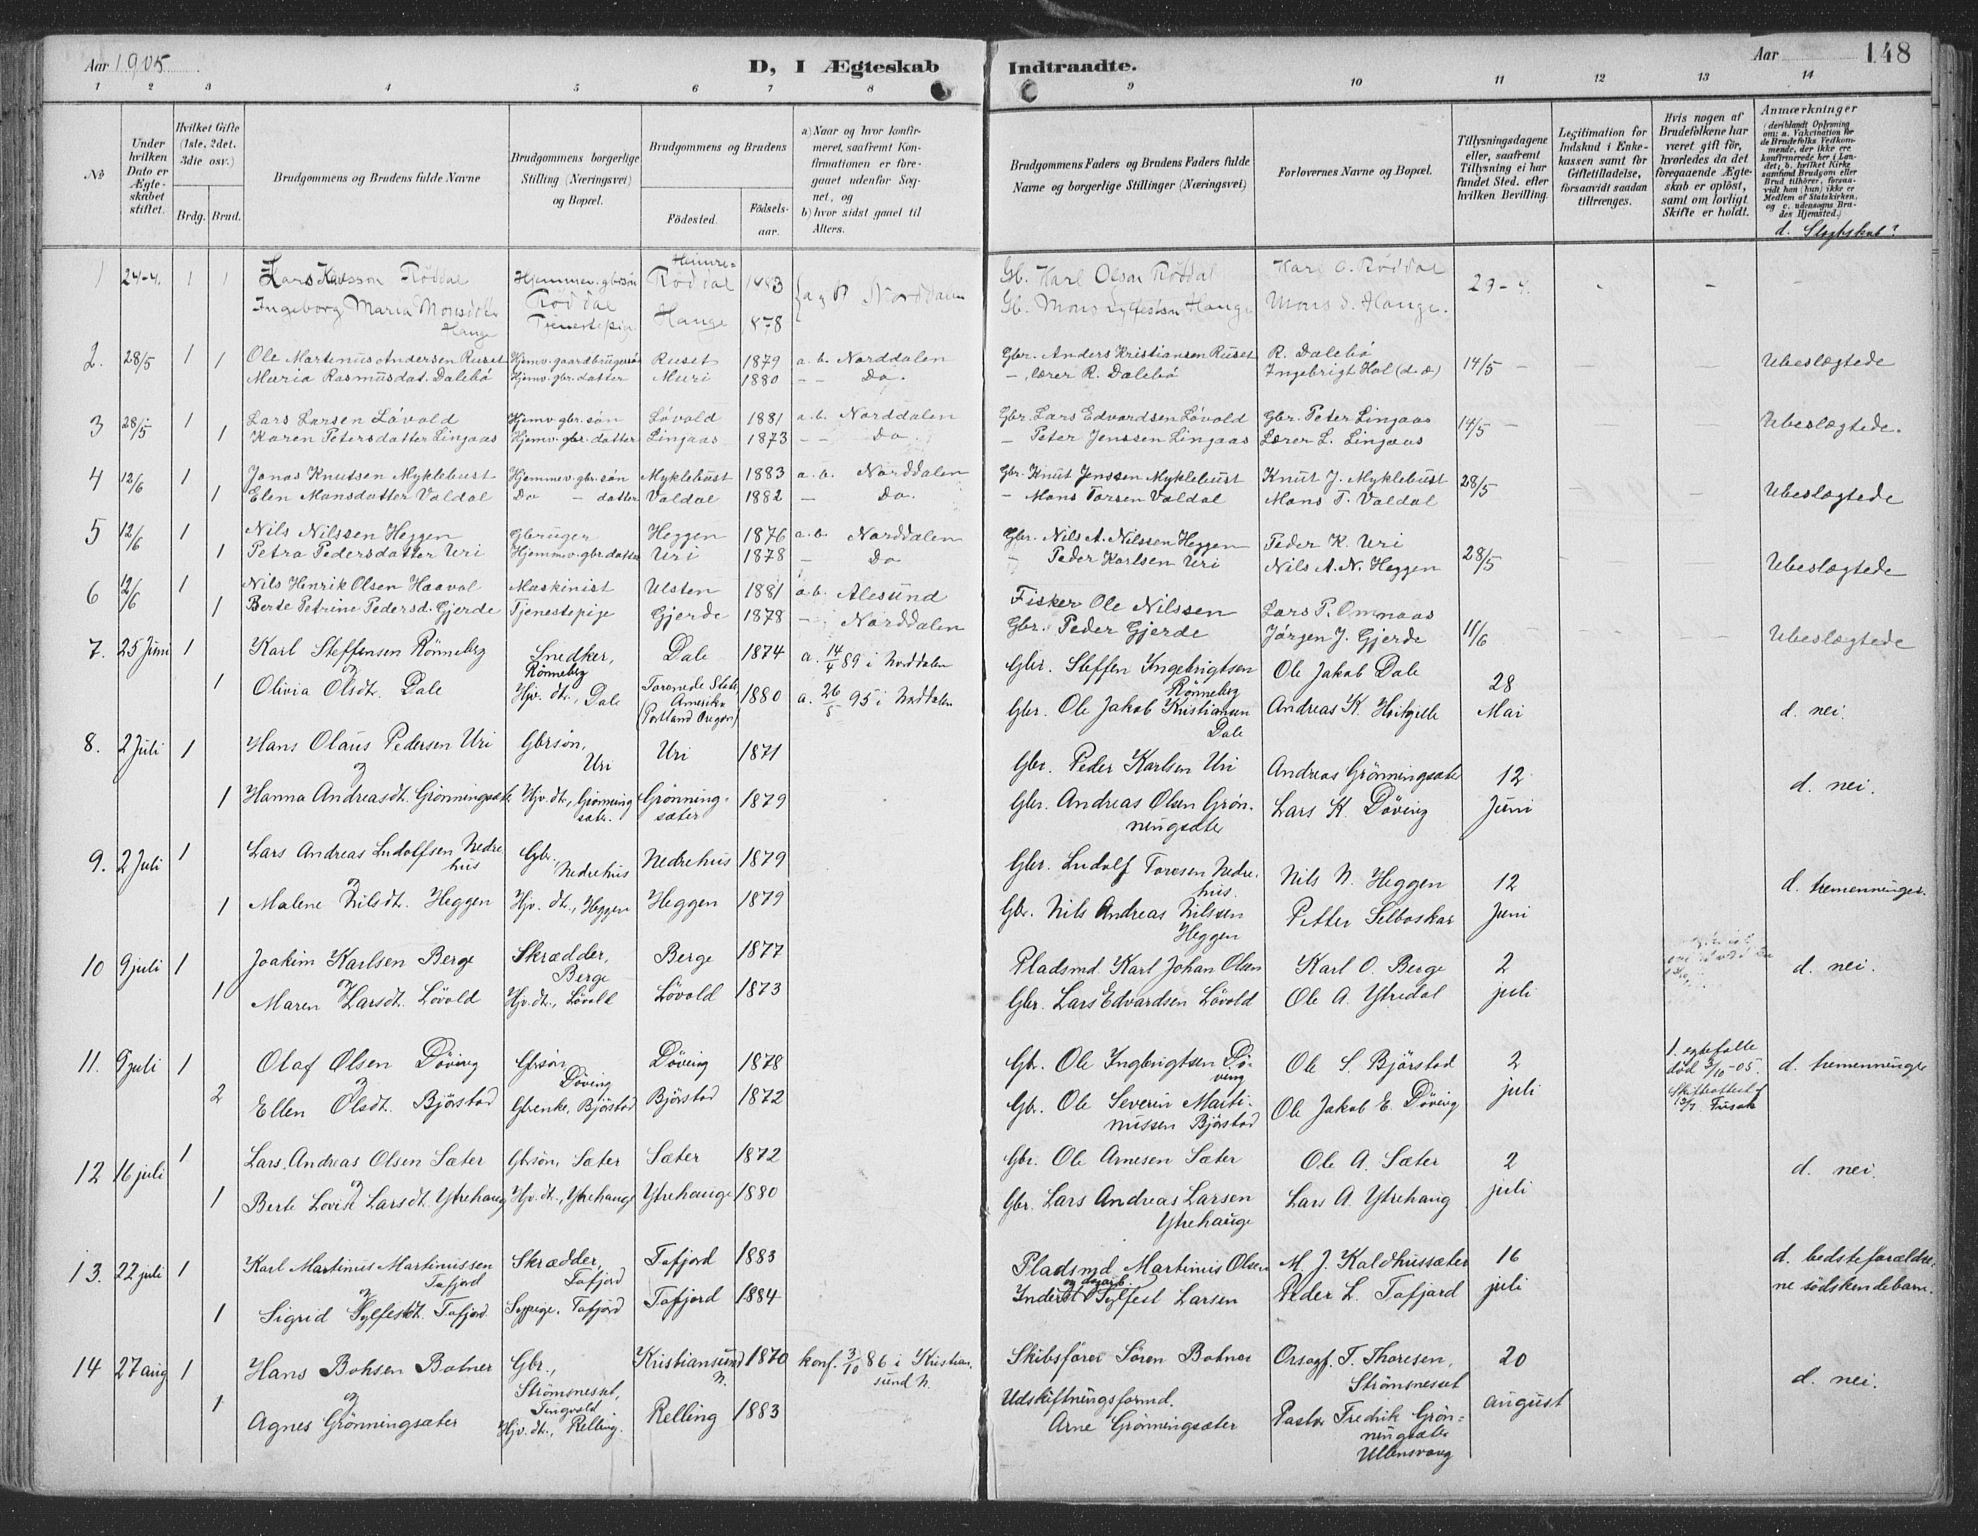 Aar 1905
D, I Ægteskab Indtraadte.
Aar 148
1 2 3 4 5 6 7 8 9 10 11 12 13 14
No
Under hvilken Dato er Ægteskabet stiftet.
Hvilket Gifte (1ste, 2det, 3die osv.)
Brdg. Brud.
Brudgommens og Brudens fulde Navne
Brudgommens borgerlige Stilling (Næringsvei) og Bopæl.
Brudgommens og Brudens
Fødested. Fødselsaar.
a) Naar og hvor konfirmeret, saafremt Konfirmationen er foregaaet udenfor Sognet, og
b) hvor sidst gaaet til Alters.
Brudgommens Faders og Brudens Faders fulde Navne og borgerlige Stillinger (Næringsvei)
Forlovernes Navne og Bopæl.
Tillysningsdagene eller, saafremt Tillysning ei har fundet Sted, efter hvilken Bevilling.
Legitimation for Indskud i Enkekassen samt for Giftetilladelse, forsaavidt saadan tiltrænges.
Hvis nogen af Brudefolkene har været gift før, hvorledes da det foregaaende Ægteskab er opløst, samt om lovligt Skifte er holdt.
Anmærkninger
(deriblandt Oplysning om: a. Vakcination for Brudefolks Vedkommende, der ikke ere konfirmerede her i Landet, b. hvilket Kirkesamfund Brudgom eller Brud tilhører, forsaavidt han (hun) ikke er Medlem af Statskirken, og c. udensogns Brudes Hjemsted.)
d. Slægtskab?
1 24-4. 1 1 Lars Karlsson Röddal Hjemmev. gbrsön Röddal 1883 a og b Norddalen Gb. Karl Olson Röddal Karl O. Röddal 29-4.
Ingeborg Maria Monsdtr Hauge Tjenestepige Hauge 1878 Gb. Mons Sylfestson Hauge Mons S. Hauge.
2. 28/5 1 Ole Martinus Andersen Ruset Hjemv. gaardbrugersön Ruset 1879 a. b. Norddalen Gbr. Anders Kristiansen Ruset R. Dalebö 14/5 Ubeslægtede
1 Maria Rasmusdat. Dalebö Hjemv. gbr. datter Muri 1880 - - Do. - lærer R. Dalebö Ingebrigt Hol
3 28/5 1 Lars Larsen Lövold Hjemv. gbr. sön Lövold 1881 a. b. Norddalen Gbr. Lars Edvardsen Lövold Gbr. Peter Lingaas 14/5 Ubeslægtede.
1 Karen Petersdatter Lingaas Hjemv. gbr. datter Lingaas 1873 - - Do. - Peter Jenssen Lingaas Lærer L. Lingaas
4 12/6 1 Jonas Knutsen Myklebust Hjemmev. gbr. sön Myklebust 1883 a. b. Norddalen Gbr. Knut Jenssen Myklebust Knut J. Myklebust 28/5 Ubeslægtede
1 Elen Monsdatter Valdal Do - datter Valdal 1882 - Do. - Mons Torsen Valdal Mons T. Valdal
5 12/6 1 Nils Nilssen Heggen Gbruger Heggen 1876 a. b. Norddalen Gbr. Nils A. Nilssen Heggen Peder K. Uri 28/5 Ubeslægtede
1 Petra Pedersdatter Uri Hjemmev. gbr. datter Uri 1878 - Do - Peder Karlsen Uri Nils A. N. Heggen
6 12/6 1 Nils Henrik Olsen Haavol Maskinist Ulsten 1881 a. b. Alesund Fisker Ole Nilssen Lars P. Omnaas 11/6 Ubeslægtede
1 Berte Petrine Pedersd. Gjerde Tjenestepige Gjerde 1878 - Norddalen Gbr. Peder Gjerde Jörgen J. Gjerde
7. 25 Juni 1 Karl Steffensen Rönneberg Snedker, Rönneberg Dale 1874 a. 14/4 89 i Norddalen Gbr. Steffen Ingebrigtsen Rönneberg Ole Jakob Dale 28 Mai d. nei.
og
1 Olivia Olsdt. Dale Hjv. dt., Dale Forenede Stater Amerika (Portland Oregon) 1880 a. 26/5 95 i Norddalen Gbr. Ole Jakob Kristiansen Dale Andreas K.
8. 2 Juli 1 Hans Olaus Pedersen Uri Gbrsön, Uri Uri 1871 Gbr. Peder Karlsen Uri Andreas Grönningsæter 12 Juni d. nei.
og
1 Hanna Andreasdt. Grönningsæter Hjv. dt., Grönningsæter. Grönningsæter 1879 Gbr. Andreas Olsen Grönningsæter Lars K. Döving
9. 2 Juli 1 Lars Andreas Ludolfsen Nedrehus Gbr., Nedrehus Nedrehus 1879 Gbr. Ludolf Toresen Nedrehus. Nils N. Heggen 12 Juni d. tremenninger.
og
1 Malene Nilsdt. Heggen Hjv. dt., Heggen Heggen 1879 Gbr. Nils Andreas Nilssen Heggen Petter Selboskar
10 9 juli 1 Joakim Karlsen Berge Skrædder, Berge Berge 1877 Pladsmd. Karl Johan Olsen Karl O. Berge 2 juli d. nei.
og
1 Maren Larsdt. Lövold Hjv. dt., Lövoll Lövold 1873 Gbr. Lars Edvardsen Lövold Ole A. Ytredal
11. 9 juli 1 Olaf Olsen Döving Gbrsön Döving Döving 1878 Gbr. Ole Ingebrigtsen Döving Ole S. Björstad 2 juli 1. egtefælle död 3/10-05. Skifteattest af 13/7 d. tremenninger
og
2 Ellen Olsdt. Björstad Gbrenke, Björstad Björstad 1872 Gb. Ole Severin Martinussen Björstad Ole Jakob E. Döving
12 16 juli 1 Lars Andreas Olsen Sæter Gbrsön, Sæter Sæter 1872 Gbr. Ole Arnesen Sæter Ole A. Sæter 2 juli d. nei.
og
1 Berte Lovise Larsdt. Ytrehaug Hjv. dt., Ytrehauge Ytrehauge 1880 Gbr. Lars Andreas Larsen Ytrehauge Lars A. Ytrehaug
13. 22 juli 1 Karl Martinus Martinussen Tafjord Skrædder, Tafjord Tafjord 1883 Pladsmd Martinus Olsen M. J. Kaldhussæter 16 juli d. bedsteforældrene södskendebarn.
og
1 Sigrid Sylfestdt. Tafjord Sypige, Tafjord Tafjord 1884 Inderst og dagarb. Sylfest Larsen Peder L. Tafjord
14 27 aug 1 Hans Bohsen Botner Gbr., Strömsneset, Tingvold Kristiansund N. 1870 konf. 3/10 86 i Kristiansund N. Skibsförer Sören Botner Orsogf. T. Thoresen, Strömsneset 20 august d. nei.
og
1 Agnes Grönningsæter Hjv. dt., Relling. Relling 1883 Udskiftningsformd. Arne Grönningsæter Pastor Fredrik Grönningsæter Ullensvang